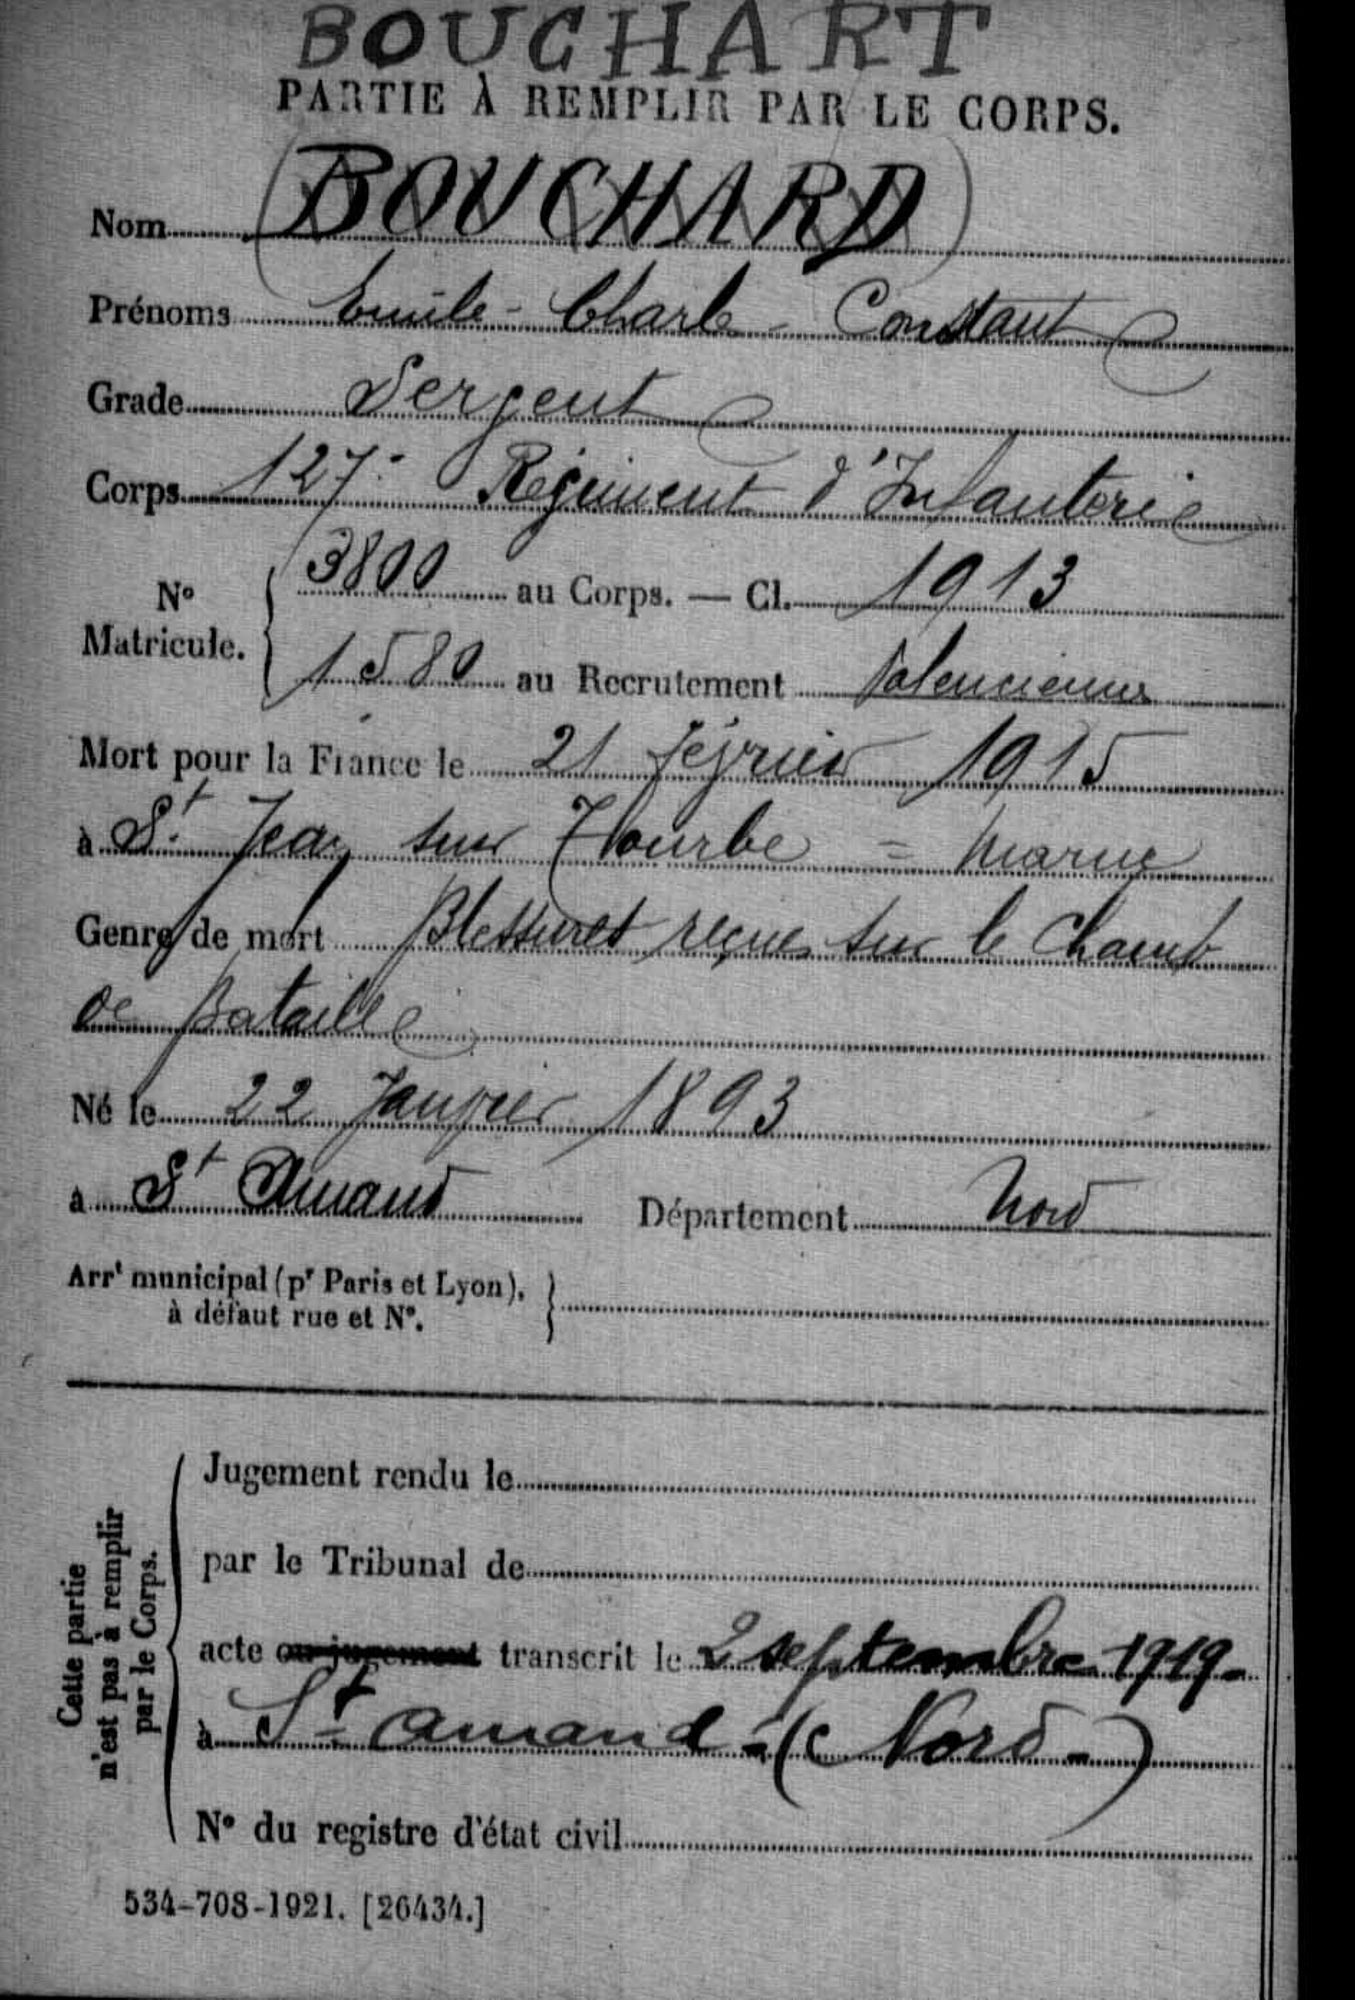 BOUCHART
PARTIE À REMPLIR PAR LE CORPS.
Nom (BOUCHARD)
Prénoms Emile - Charle - Constant
Grade Sergent
Corps 127e Régiment d'Infanterie
N° Matricule. { 3800 au Corps. — Cl. 1913
1580 au Recrutement Valenciennes
Mort pour la France le 21 février 1915
à St Jean sur Tourbe = Marne
Genre de mort Blessures reçues sur le Champ
de Bataille
Né le 22 Janvier 1893
à St Amand Département Nord
Arrt municipal (pr Paris et Lyon), }
à défaut rue et N°.
Cette partie
n'est pas à remplir
par le Corps.
Jugement rendu le
par le Tribunal de
acte ou jugement transcrit le 2 septembre 1919-
à St= amand - (Nord-)
N° du registre d'état civil
534-708-1921. [26434.]